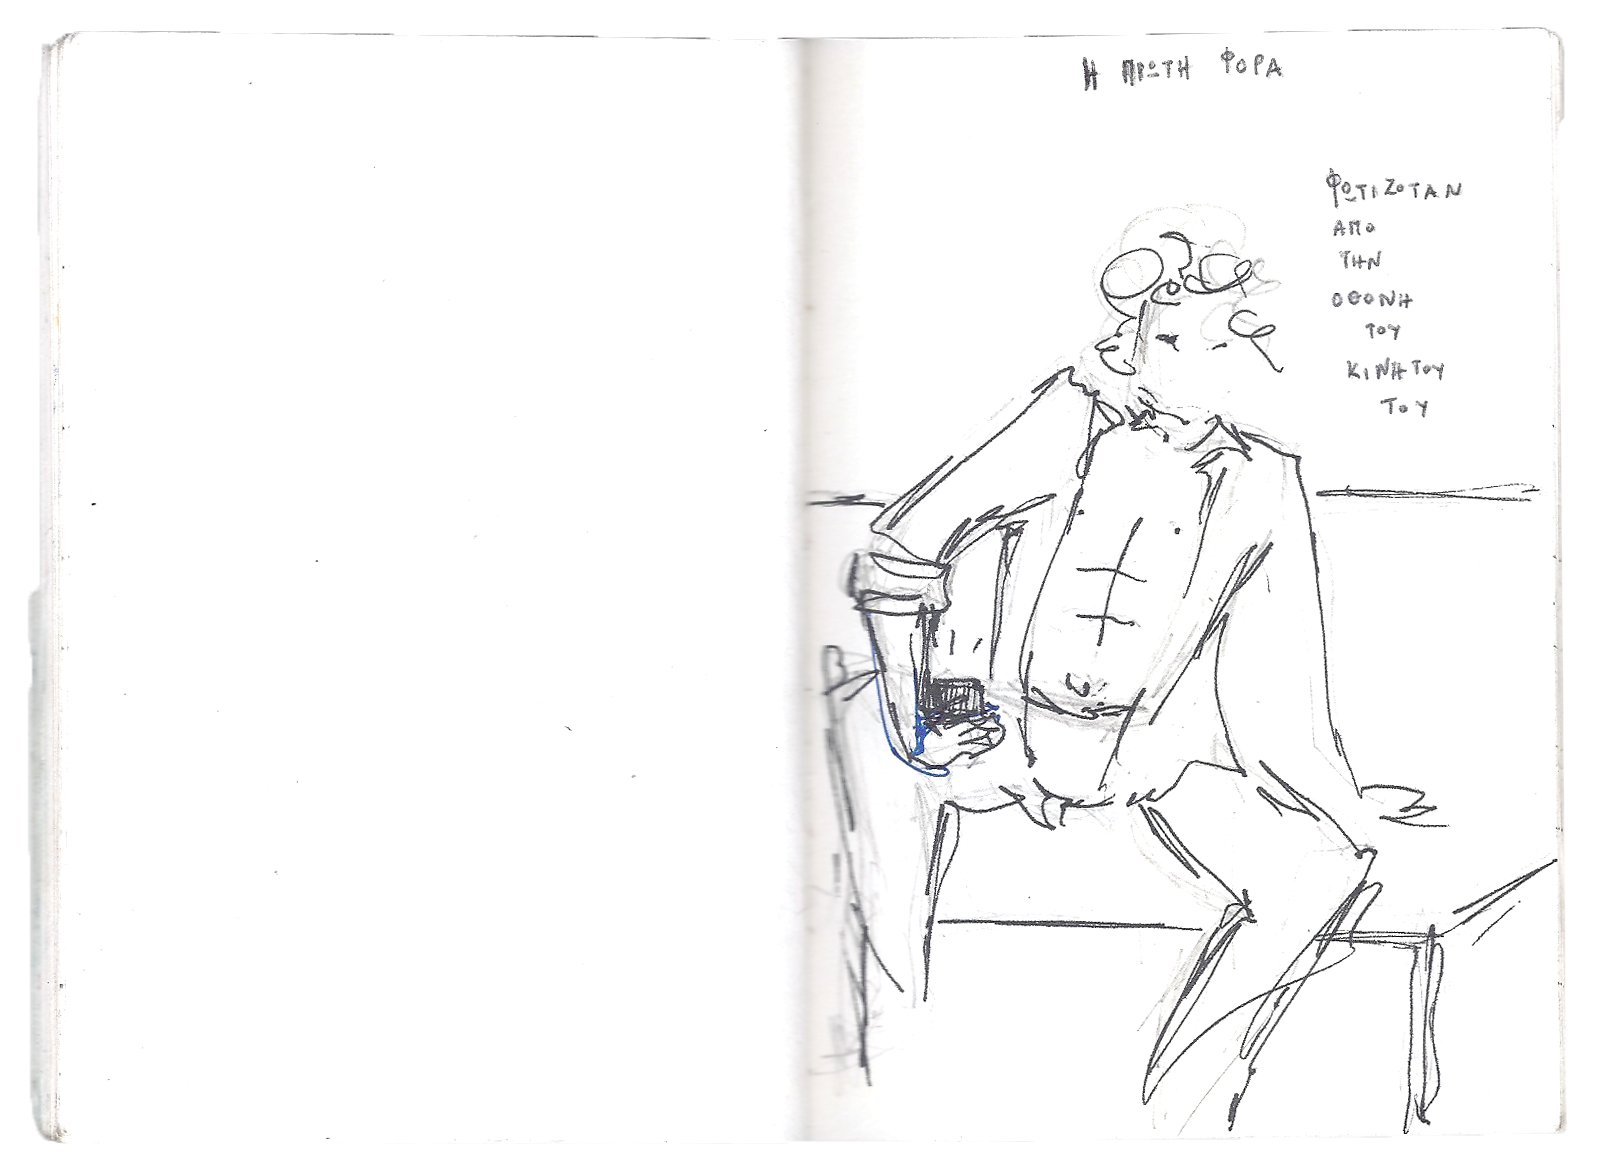 Η ΠΡΩΤΗ ΦΟΡΑ
ΦΩΤΙΖΟΤΑΝ
ΑΠΟ
ΤΗΝ
ΟΘΟΝΗ
ΤΟΥ
ΚΙΝΗΤΟΥ
ΤΟΥ